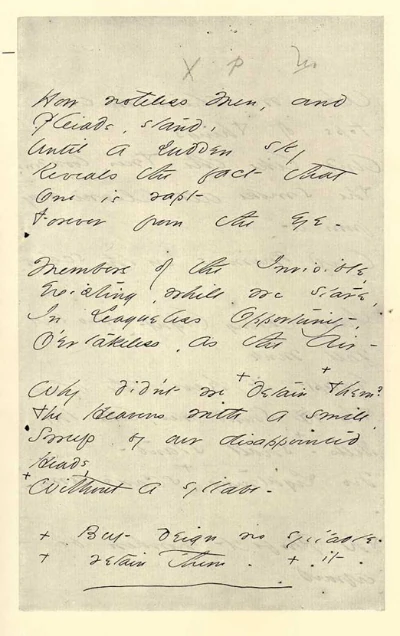 X P
How noteless Men, and
Pleiads, stand,
Until a sudden sky
Reveals the fact that
One is rapt
Forever from the Eye -
Members of the Invisible,
Existing, while we stare,
In Leagueless Opportunity,
O'ertakeless, as the Air -
Why didn't we + detain + Them?
The Heavens with a smile
Sweep by our disappointed
Heads,
+ Without a syllable -
+ But deign no syllable -
+ retain Them - + it -